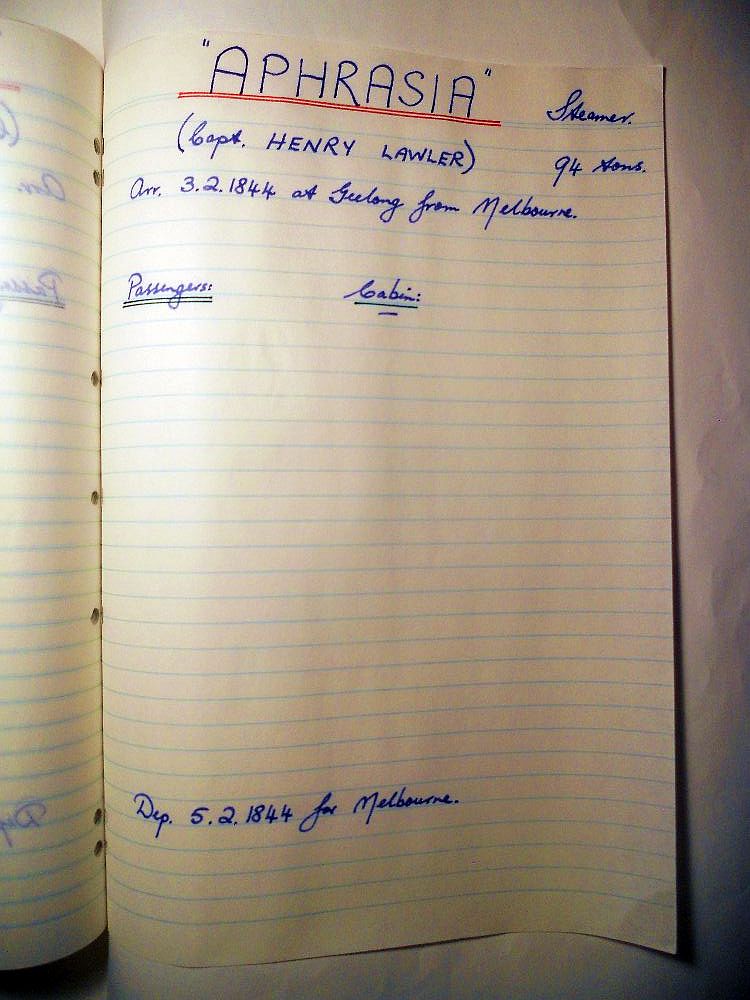 "APHRASIA"
Steamer.
(Capt. HENRY LAWLER)
94 tons.
Arr. 3.2.1844 at Geelong from Melbourne.
Passengers:
Cabin:
Dep. 5.2.1844 for Melbourne.